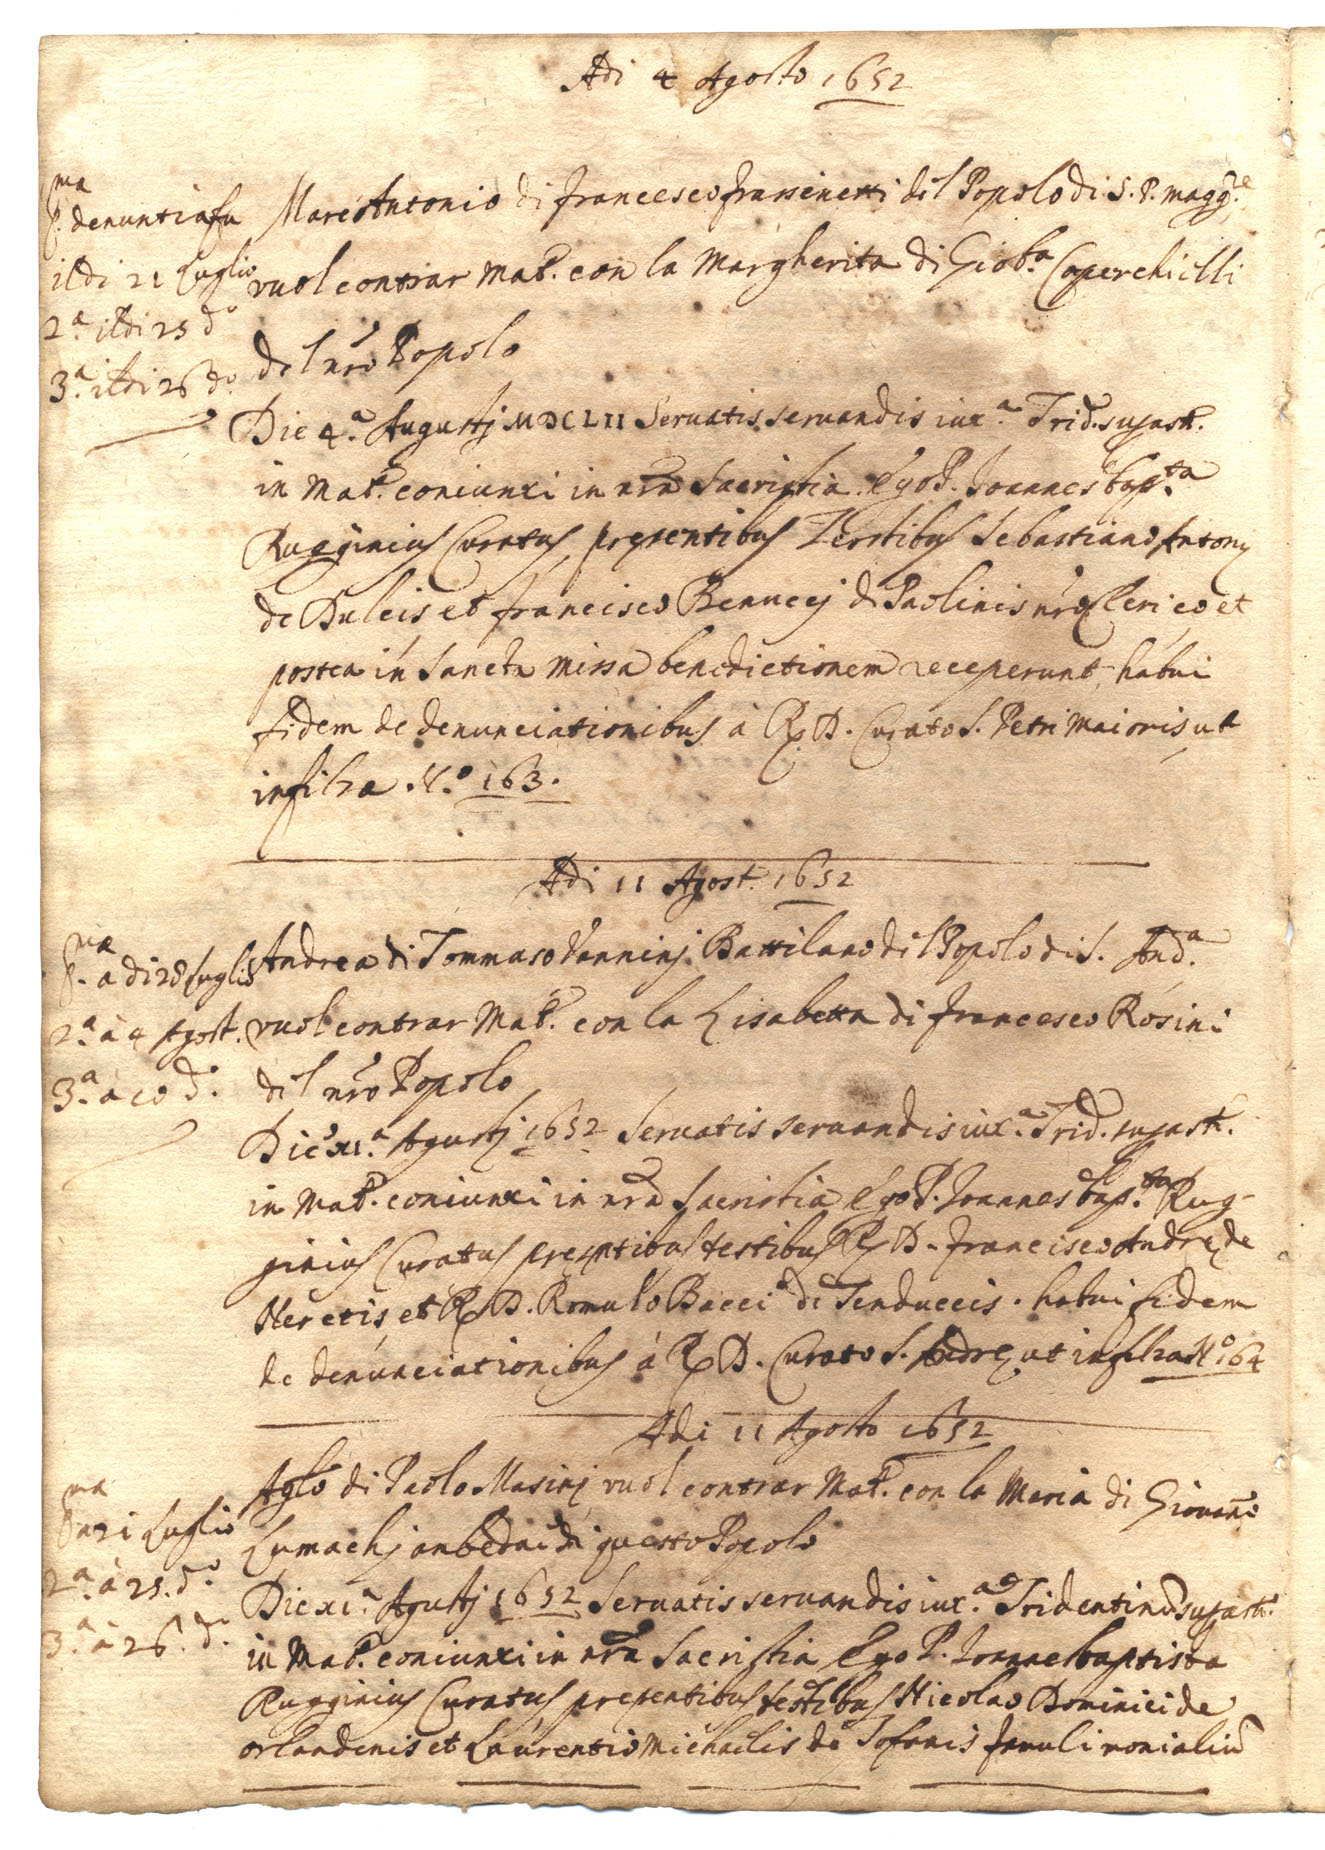 Adi 4 Agosto 1652
p.ma denuntia fu
il di 21 Luglio
2.a il di 25 d.o
3.a il di 26 do.
Marc Antonio di Francesco frassinetti del Popolo di S. P. magg.e
vuol contrar Mat.o con la Margherita di Giob.a Coperchielli
del nro Popolo
Die 4.a Augusti MDCLII Servatis servandis iux.a Trid. supast.
in Mat.o coniunxi in nra Sacristia. Ego P. Joannes bap.ta
Rugginius Curatus presentibus Testibus Sebastiano Antonij
de Dulcis et francisco Benucej de Paolinis nro Clerico et
postea in Sancta missa benedictionem receperunt, habui
fidem de denunciationibus à R. D. Curato S. Petri Maioris ut
in filza N.o 163.
Adi 11 Agost. 1652
p.ma a di 28 Luglio
2.a à 4 Agost.
3.a a 10 d.o
Andrea di Tommaso Vanninj Battilano del Popolo di S. And.a
vuol contrar Mat.o con la Lisabetta di francesco Rosini
del nro Popolo
Die xi.a Agustj 1652 Servatis servandis iux.a Trid. supast.
in Mat.o coniunxi in nra Sacristia Ego P. Joannes bap.ta Rug-
ginius Curatus presentibus testibus R. D. francisco Andreę de
Neretis et R. D. Romulo Bacci de Tenduccis. habui fidem
de denunciationibus à R. D. Curato S. Andreę ut in filza N.o 164
Adi 11 Agosto 1652
p.ma a 21 Luglio
2.a à 25. d.o
3.a à 26. d.o
Agl.o di Paolo Masinj vuol contrar Mat.o con la Maria di Giovanni
Lumachj anbedui di questo Popolo
Die xi.a Agustj 1652 Servatis servandis iux.a Tridentinũ supast.
in Mat.o coniunxi in nra Sacristia Ego P. Joannes baptista
Rugginius Curatus presentibus testibus Nicolao Dominici de
orlandinis et Laurentio Michaelis de Tofanis famuli monialiũ